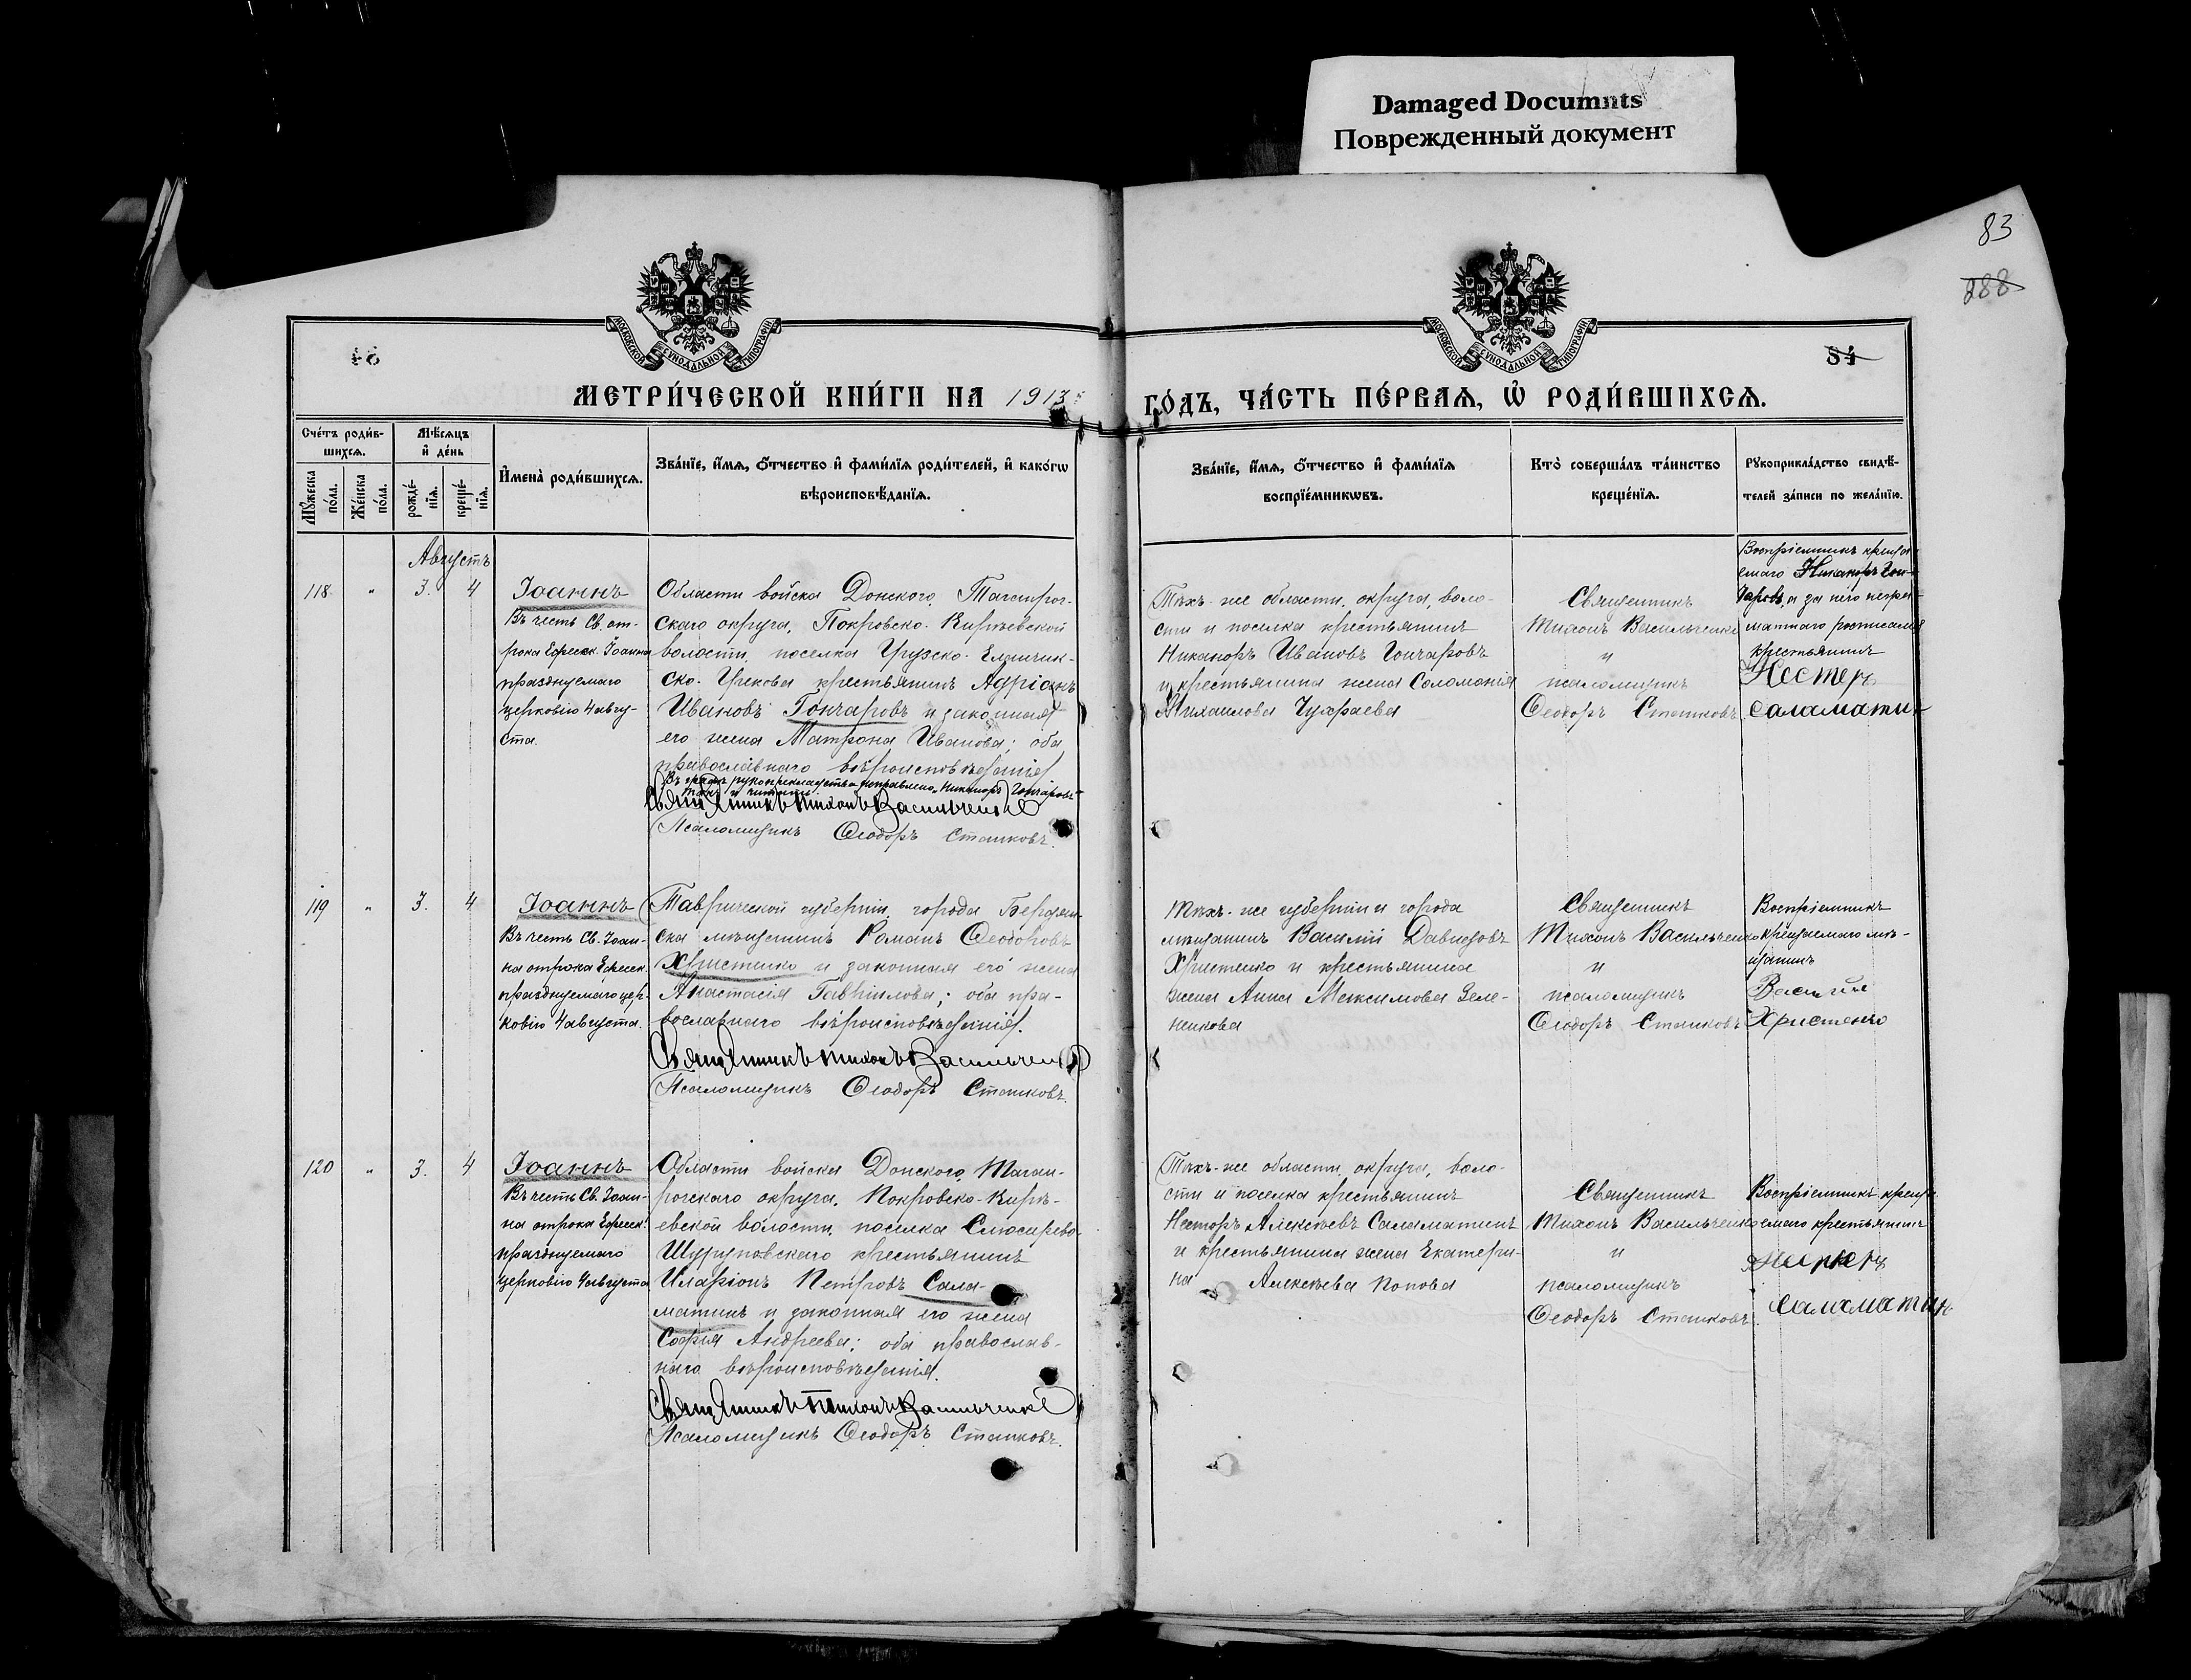 Damaged Documnts
Поврежденный документ
83
188
МОСКОВСКОЙ СУНОДАЛЬНОЙ ТИПОГРАФІИ
МОСКОВСКОЙ СУНОДАЛЬНОЙ ТИПОГРАФІИ
84
МЕТРИ́ЧЕСКОЙ КНИ́ГИ НА 1913
ГО́ДЪ, ЧА́СТЬ ПЕ́РВАЯ, Ѡ҆ РОДИ́ВШИХСЯ.
Сче́тъ роди́в-
шихся.
Мѣ́сяцъ
и҆ де́нь
Мꙋ́жеска
по́ла.
Же́нска
по́ла.
рожде́-
нїя.
креще́-
нїя.
И҆мена̀ роди́вшихся.
Зва́нїе, и҆́мя, ѻ҆́тчество и҆ фами́лїя роди́телей, и҆ како́гѡ
вѣроисповѣ́данїя.
Зва́нїе, и҆́мя, ѻ҆́тчество и҆ фами́лїя
воспрїе́мникѡвъ.
Кто̀ соверша́лъ та́инство
креще́нїя.
Рꙋкоприкла́дство свидѣ́-
телей за́писи по жела́нїю.
Августъ
118
"
3.
4
Іоаннъ
Въ честь Св. от-
рока Ефесск. Іоанна
празднуемаго
церковію 4 авгу-
ста.
Области войска Донского, Таганрог-
скаго округа, Покровско-Киреевской
волости, поселка Грузско-Еланчик-
ско-Грекова крестьянинъ Адріанъ
Ивановъ Гончаровъ и законная
его жена Матрона Иванова; оба
православнаго вѣроисповѣданія.
Въ графѣ рукоприкладства поправлено "Никаноръ Гончаровъ"
Священникъ Тихонъ Васильченко
Псаломщикъ Ѳеодоръ Сташковъ.
Тѣхъ-же области, округа, воло-
сти и поселка крестьянинъ
Никаноръ Ивановъ Гончаровъ
и крестьянина жена Соломонія
Михаилова Чухраева
Священникъ
Тихонъ Васильченко
и
псаломщикъ
Ѳеодоръ Сташковъ
Воспріемникъ креща-
емаго Никаноръ Гон-
чаровъ, а за него негра-
мотнаго росписался
крестьянинъ
Нестеръ
Саламатин
119
"
3.
4
Іоаннъ
Въ честь Св. Іоан-
на отрока Ефесск.
празднуемаго цер-
ковію 4 августа.
Таврической губерніи, города Бердян-
ска мѣщанинъ Романъ Ѳеодоровъ
Христенко и законная его жена
Анастасія Гавріилова; оба пра-
вославнаго вѣроисповѣданія.
Священникъ Тихонъ Васильченко
Псаломщикъ Ѳеодоръ Сташковъ.
Тѣхъ-же губерніи и города
мѣщанинъ Василій Давидовъ
Христенко и крестьянина
жена Анна Максимова Зеле-
нькова
Священникъ
Тихонъ Васильченко
и
псаломщикъ
Ѳеодоръ Сташковъ
Воспріемникъ
крещаемаго мѣ-
щанинъ
Василій
Христенко
120
"
3.
4
Іоаннъ
Въ честь Св. Іоан-
на отрока Ефесск.
празднуемаго
церковію 4 августа
Области войска Донского, Таган-
рогскаго округа, Покровско-Кире-
евской волости, поселка Слюсарево-
Шурупскаго крестьянинъ
Иларіонъ Петровъ Сала-
матинъ и законная его жена
Софія Андреева; оба православ-
наго вѣроисповѣданія.
Священникъ Тихонъ Васильченко
Псаломщикъ Ѳеодоръ Сташковъ.
Тѣхъ-же области, округа, воло-
сти и поселка крестьянинъ
Несторъ Алексѣевъ Саламатинъ
и крестьянина жена Екатери-
на Алексѣева Попова
Священникъ
Тихонъ Васильченко
и
псаломщикъ
Ѳеодоръ Сташковъ.
Воспріемникъ креща-
емаго крестьянинъ
Саламатин